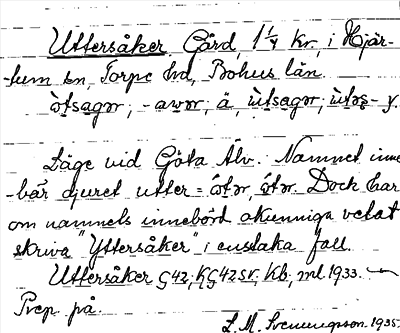 Uttersåker, Gård, 1 1/4 kr., i Hjär-
tum sn, Torpe hd, Bohus län.
ò̀tsagər, -awər, ä, ùtsagər,
Läge vid Göta Älv. Namnet inne-
bär djuret utter = Dock har
om namnets innebörd okunniga velat
skriva "Yttersåker" i enstaka fall.
Uttersåker G42, KG42SV, Kb, ml 1933.
Prep. på.
L. M. Svenungsson. 1935